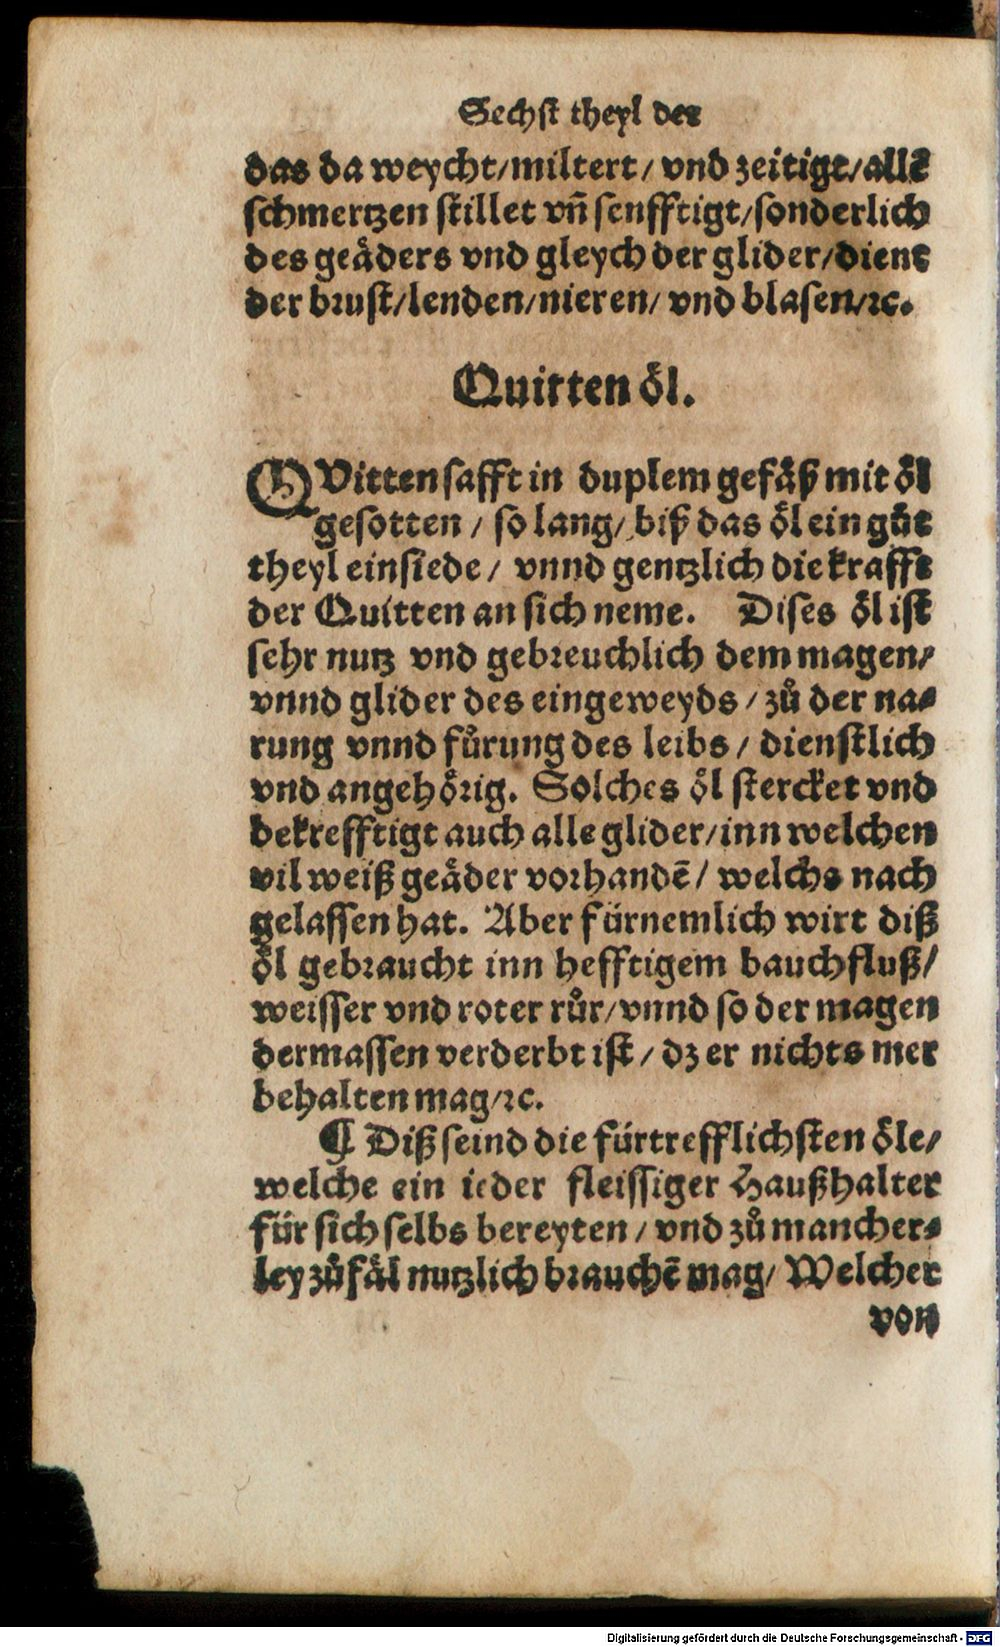 Sechst theyl der
das da weycht/miltert/ vnd zeitigt/allē
schmertzen stillet vñ senfftigt/sonderlich
des geåders vnd gleych der glider/dient
der brust/lenden/nieren/ vnd blasen/ꝛc.
Quitten öl.
QVittensafft in duplem gefåß mit öl
gesotten / so lang/ biß das öl ein gůt
theyl einsiede/ vnnd gentzlich die krafft
der Quitten an sich neme. Dises öl ist
sehr nutz vnd gebreuchlich dem magen/
vnnd glider des eingeweyds / zů der na-
rung vnnd fůrung des leibs / dienstlich
vnd angehörig. Solches öl stercket vnd
bekrefftigt auch alle glider/inn welchen
vil weiß geåder vorhandē/ welchs nach
gelassen hat. Aber fürnemlich wirt diß
öl gebraucht inn hefftigem bauchfluß/
weisser vnd roter růr/vnnd so der magen
dermassen verderbt ist / dz er nichts mer
behalten mag/ꝛc.
¶ Diß seind die fürtrefflichsten öle/
welche ein ieder fleissiger Haußhalter
für sich selbs bereyten / vnd zů mancher-
ley zůfål nutzlich brauchē mag/ Welcher
von
Digitalisierung gefördert durch die Deutsche Forschungsgemeinschaft - DFG